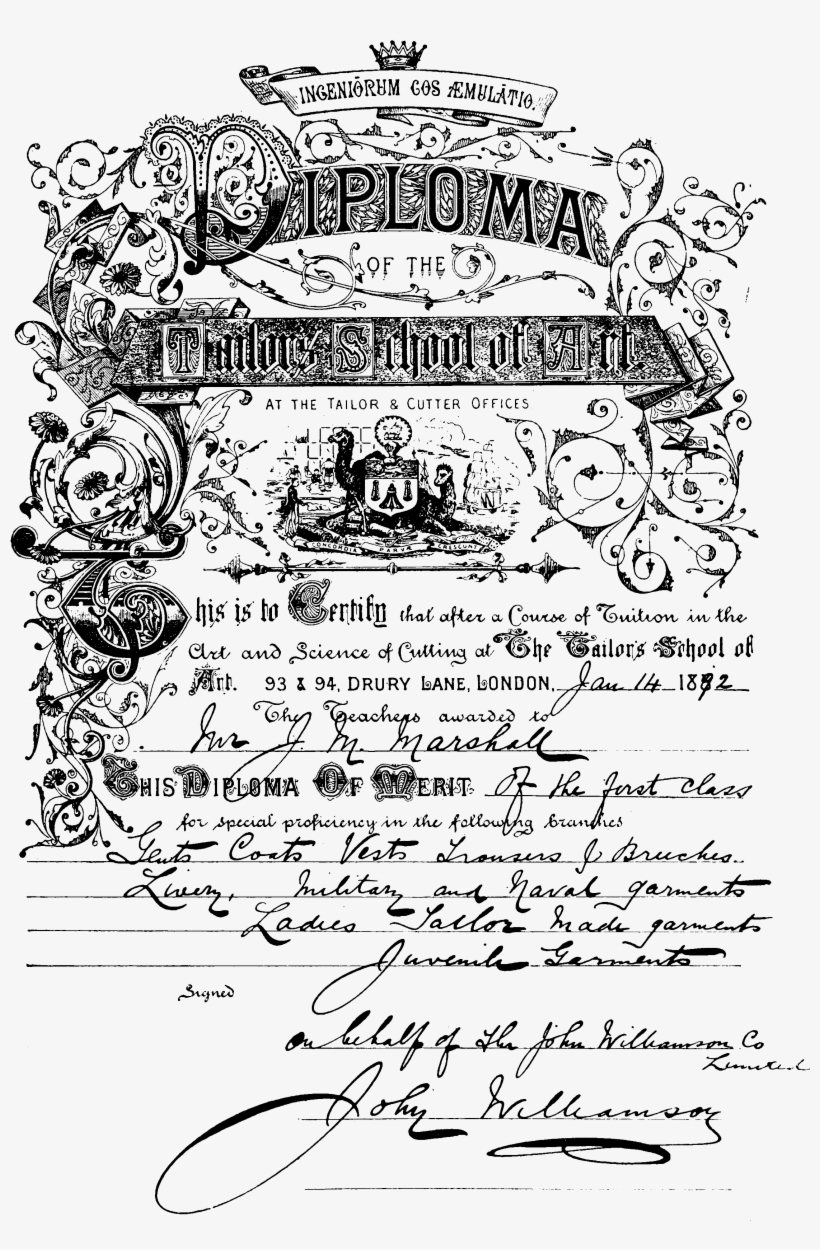 INGENIÖRUM COS ÆMULÁTIO.
DIPLOMA
OF THE
Tailors School of Art.
AT THE TAILOR & CUTTER OFFICES
CONCORDIA PARVÆ CRESCUNT
This is to Certify that after a Course of Tuition in the
Art and Science of Cutting at The Tailor's School of
Art. 93 & 94, DRURY LANE, LONDON, Jan 14 1892
The Teachers awarded to
Mr J. M. Marshall
THIS DIPLOMA OF MERIT Of the first class
for special proficiency in the following branches
Gents Coats Vests Trousers & Breeches.
Livery, Military and Naval garments
Ladies Tailor Made garments
Juvenile Garments
Signed
on behalf of The John Williamson Co
Limited
John Williamson